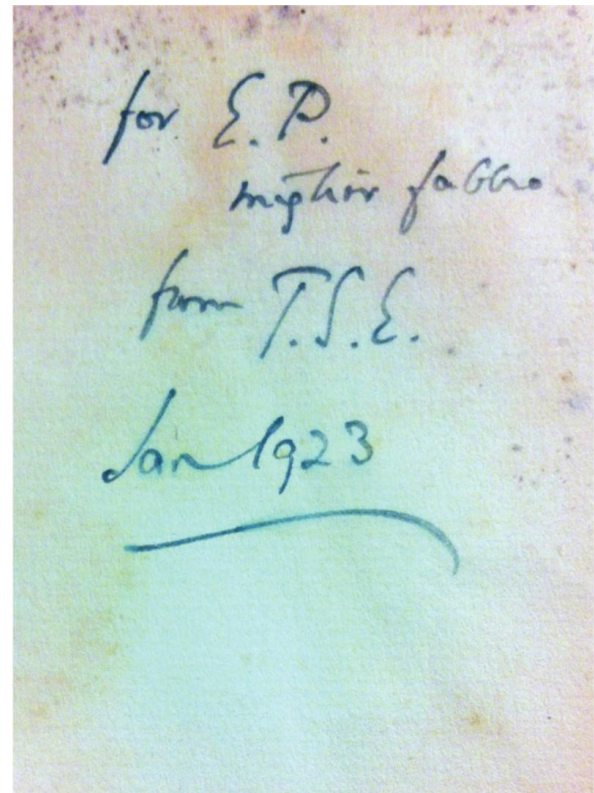 for E. P.
miglior fabbro
from T.S.E.
Jan 1923